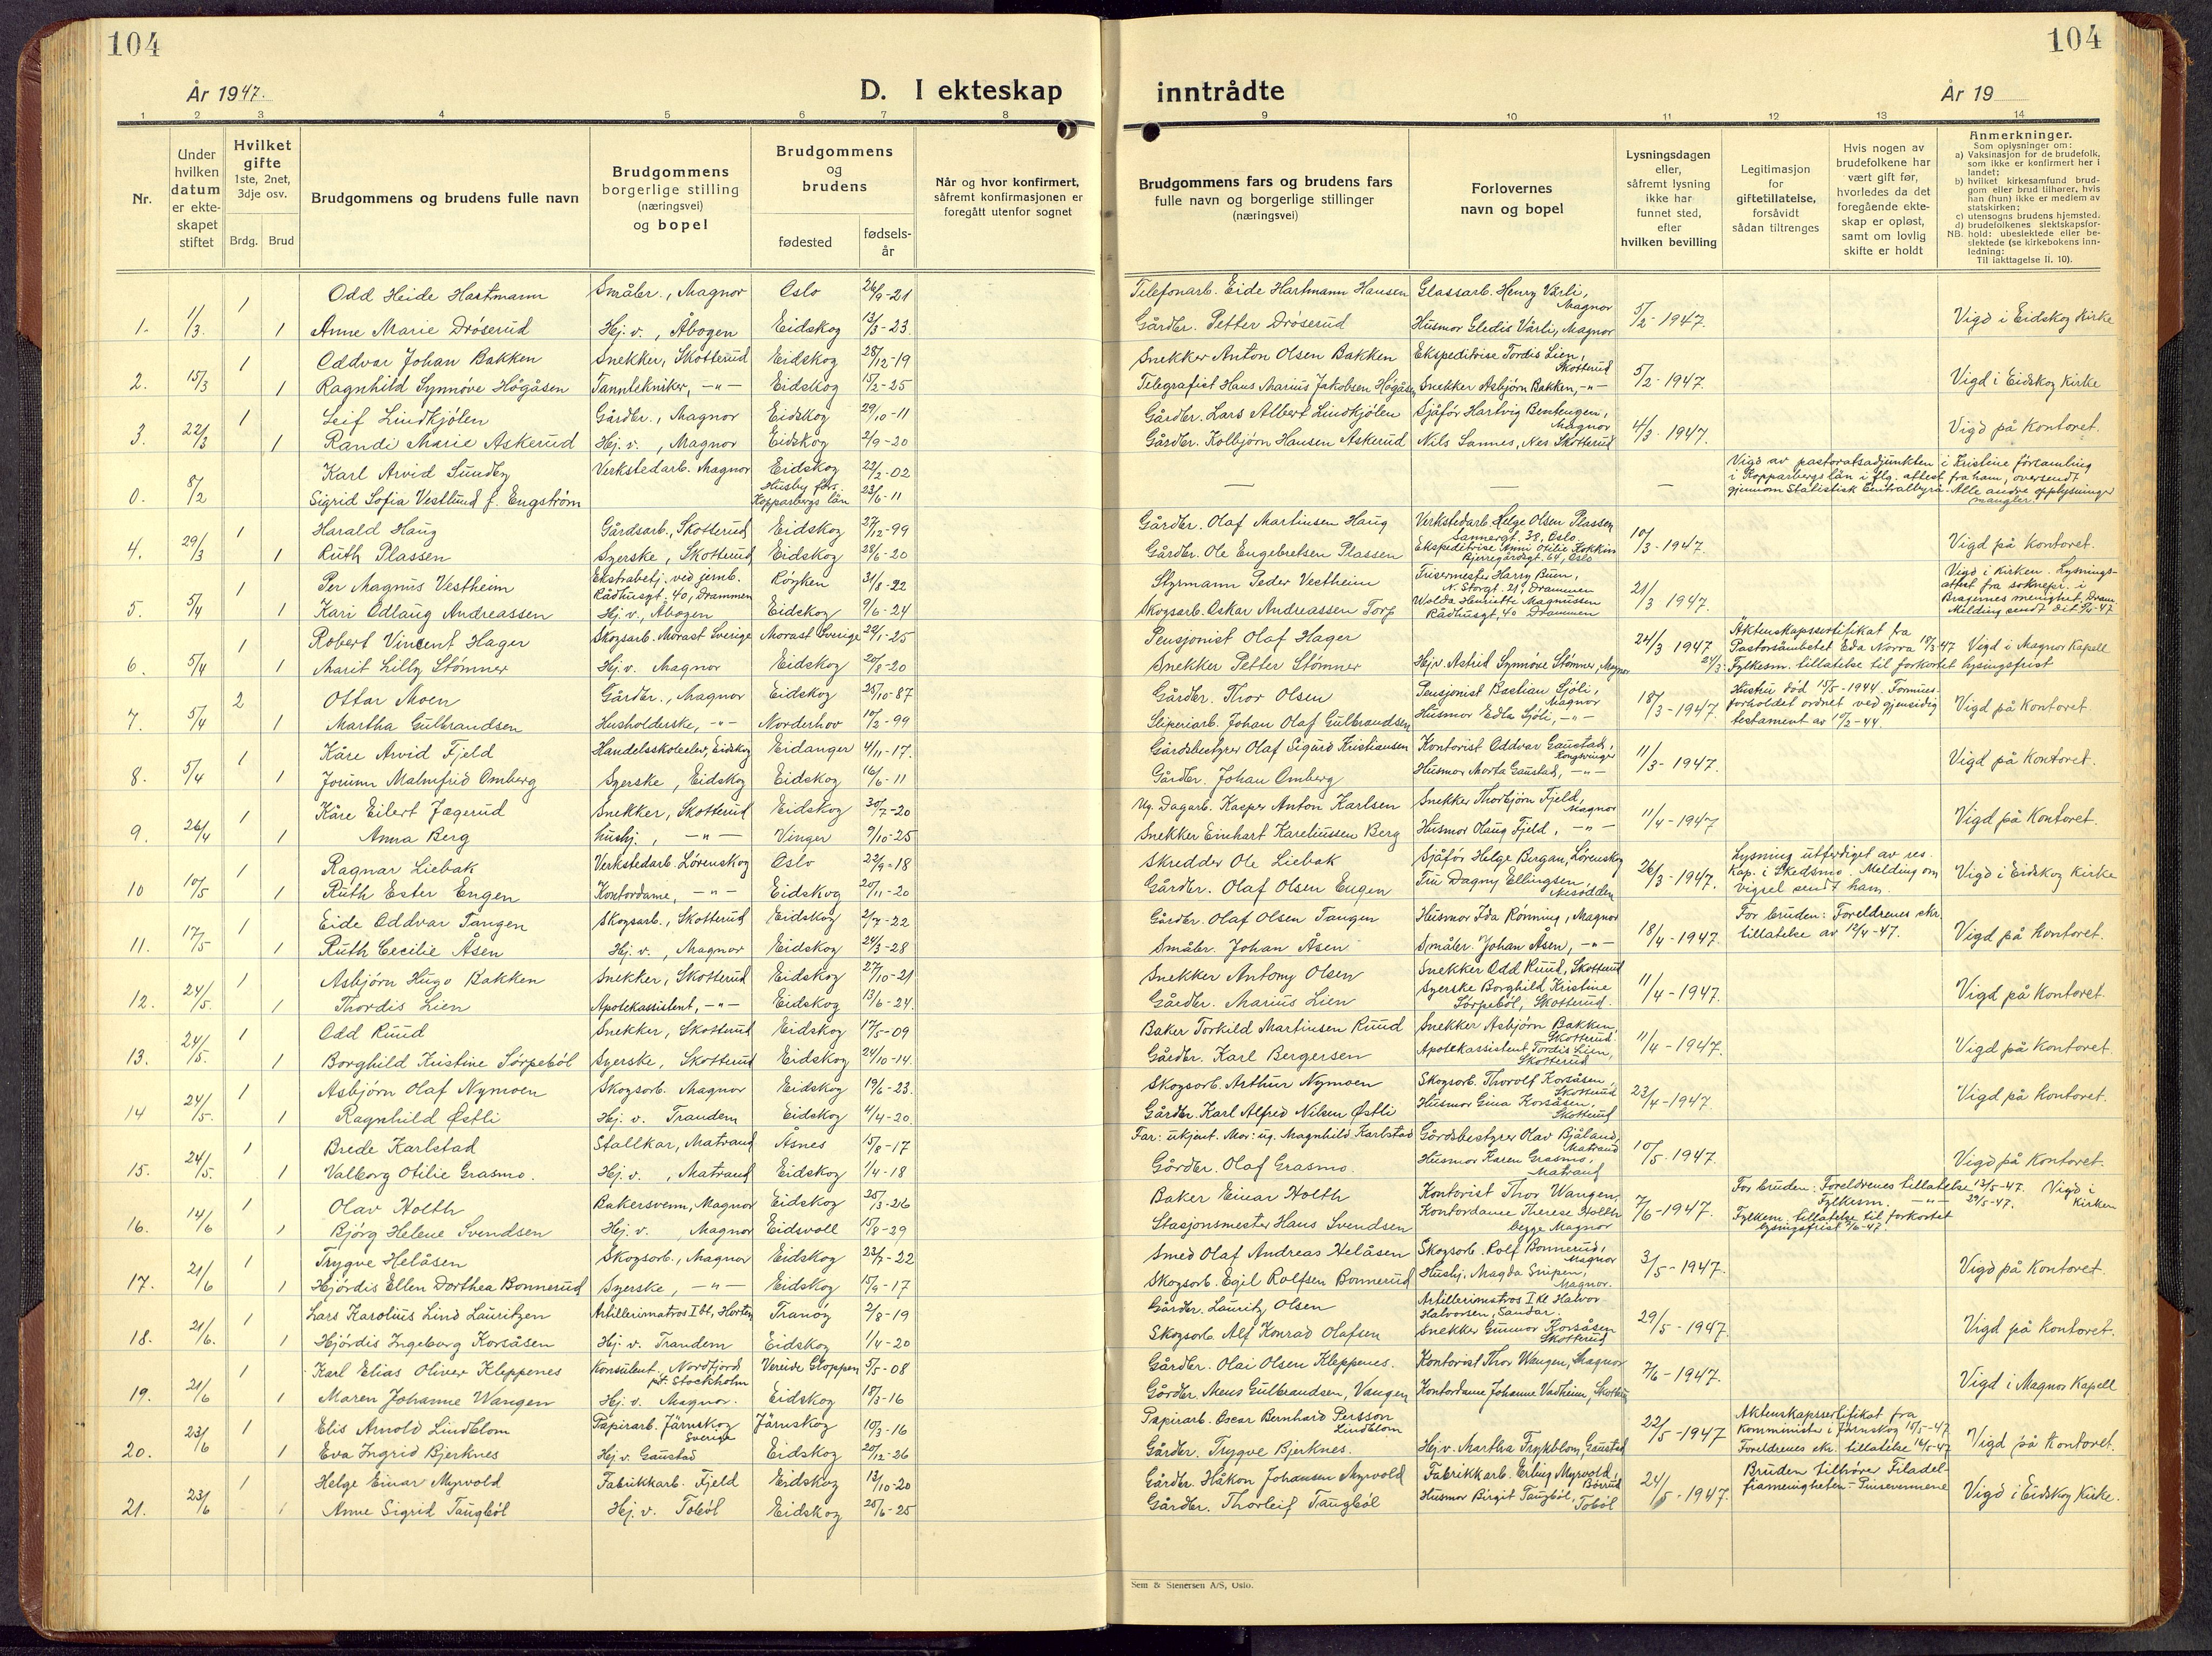 104
År 1947.
D. I ekteskap
inntrådte
År 19
104
1 2 3 4 5 6 7 8 9 10 11 12 13 14
Nr.
Under hvilken datum er ekteskapet stiftet
Hvilket gifte
1ste, 2net, 3dje osv.
Brdg. Brud
Brudgommens og brudens fulle navn
Brudgommens borgerlige stilling (næringsvei) og bopel
Brudgommens og brudens
fødested
fødselsår
Når og hvor konfirmert, såfremt konfirmasjonen er foregått utenfor sognet
Brudgommens fars og brudens fars fulle navn og borgerlige stillinger (næringsvei)
Forlovernes navn og bopel
Lysningsdagen eller, såfremt lysning ikke har funnet sted, efter hvilken bevilling
Legitimasjon for giftetillatelse, forsåvidt sådan tiltrenges
Hvis nogen av brudefolkene har vært gift før, hvorledes da det foregående ekteskap er opløst, samt om lovlig skifte er holdt
Anmerkninger.
Som oplysninger om:
a) Vaksinasjon for de brudefolk, som ikke er konfirmert her i landet;
b) hvilket kirkesamfund brudgom eller brud tilhører, hvis han (hun) ikke er medlem av statskirken;
c) utensogns brudens hjemsted.
d) brudefolkenes slektskapsforhold: ubeslektede eller beslektede (se kirkebokens innledning:
NB.
Til iakttagelse II. 10).
1. 1/3. 1 Odd Heide Hartmann Småbr., Magnor Oslo 26/9-21 Telefonarb. Eide Hartmann Hansen Glassarb. Henry Värli, Magnor 5/2-1947. Vigd i Eidskog Kirke
1 Anne Marie Drøserud Hj.v., Åbogen Eidskog 13/3-23. Gårdbr. Petter Drøserud Husmor Gledis Värli, Magnor
2. 15/3 1 Oddvar Johan Bakken Snekker, Skotterud Eidskog 28/12-19 Snekker Anton Olsen Bakken Ekspeditrise Tordis Lien, Skotterud 5/2-1947. Vigd i Eidskog Kirke
1 Ragnhild Synnøve Högåsen Tanntekniker, -"- Eidskog 15/2-25 Telegrafist Hans Marius Jakobsen Högåsen Snekker Asbjørn Bakken, -"-
3. 22/3 1 Leif Lindkjølen Gårdbr., Magnor Eidskog 29/10-11 Gårdbr. Lars Albert Lindkjølen Sjåfør Hartvig Bentengen, Magnor 4/3-1947. Vigd på Kontoret.
1 Randi Marie Askerud Hj.v., Magnor Eidskog 2/9-20 Gårdbr. Kolbjørn Hansen Askerud Nils Sannes, Nes. Skotterud
0. 8/2 Karl Arvid Sundby Verkstedarb. Magnor Eidskog 22/2-02 — — — Vigd av pastoratsadjunkten i Kristine församling
Sigrid Sofia Vestlund f. Engström Husby förs. Kopparbergs län 23/6-11 i Kopparbergs län i flg. attest fra ham, oversendt
gjennom Statistisk Centralbyrå. Alle andre opplysninger mangler
4. 29/3 1 Harald Haug Gårdsarb., Skotterud Eidskog 27/12-99 Gårdbr. Olaf Martinsen Haug Verkstedarb. Helge Olsen Plassen Sannergt. 38, Oslo. 10/3-1947. Vigd på Kontoret.
1 Ruth Plassen Syerske, Skotterud Eidskog 28/6-20 Gårdbr. Ole Engebretsen Plassen Ekspeditrise Anni Otilie Kokkin Bjerregårdsgt. 64, Oslo
5. 5/4 1 Per Magnus Vestheim Ekstrabetj. ved jernb. Rådhusgt. 40, Drammen Røyken 31/8-22 Styrmann Peder Vestheim Frisermester Harry Buen, N. Storgt. 21, Drammen 21/3 1947. Vigd i Kirken. Lysningsattest fra sokneprs. i Bragernes menighet, Dram.
1 Kari Odlaug Andreassen Hj.v., Åbogen Eidskog 9/6-24 Skogsarb. Oskar Andreassen Torp Wolda Henriette Magnussen Rådhusgt. 40 Drammen Melding sendt dit 8/4-47
6. 5/4 1 Robert Vincent Hager Skogsarb. Morast Sverige Morast Sverige 22/1-25 Pensjonist Olaf Hager 24/3 1947 Äktenskapssertifikat fra Pastorsämbetet Eda Norra 18/3 47 Vigd i Magnor Kapell
1 Marit Lilly Stømner Hj.v. Magnor Eidskog 20/8-20 Snekker Petter Stømner Hjv. Astrid Synnøve Stømner, Magnor 24/3: Fylkesm. tillatelse til forkortet lysingsfrist
7. 5/4 2 Ottar Moen Gårdbr., Magnor Eidskog 25/10-87 Gårdbr. Thor Olsen Pensjonist Bastian Sjøli, Magnor 18/3-1947. Hustru død 15/5-1944. Formuesforholdet ordnet ved gjensidig testament av 17/2-44 Vigd på Kontoret.
1 Martha Gulbrandsen Husholderske, -"- Norderhov 10/2-99 Sliperiarb. Johan Olaf Gulbrandsen Husmor Edla Sjøli, -"-
8. 5/4 1 Kåre Arvid Fjeld Handelsskoleelev, Eidskog Eidanger 4/11-17. Gårdsbestyrer Olaf Sigurd Kristiansen Kontorist Oddvar Gaustad, Kongsvinger 11/3-1947. Vigd på Kontoret.
1 Jorunn Malmfrid Omberg Syerske, Eidskog Eidskog 16/6-11 Gårdbr. Johan Omberg Husmor Marta Gaustad, -"-
9. 26/4 1 Kåre Eilert Jægerud Snekker, Skotterud Eidskog 30/7-20 Ug. Dagarb. Kasper Anton Karlsen Snekker Thorbjørn Fjeld, Magnor 11/4-1947 Vigd på Kontoret.
1 Anna Berg hushj., -"- Vinger 9/10-25 Snekker Einhart Kareliussen Berg Husmor Olaug Fjeld, -"-
10 10/5 1 Ragnar Liebak Verkstedarb. Lørenskog Oslo 22/9-18 Skredder Ole Liebak Sjåfør Helge Bergan, Lørenskog 26/3-1947. Lysning utferdiget av res. kap. i Skedsmo. Melding om vigsel sendt ham. Vigd i Eidskog Kirke
1 Ruth Ester Engen Kontordame, -"- Eidskog 20/11-20 Gårdbr. Olaf Olsen Engen Fru Dagny Ellingsen Nesodden
11. 17/5 1 Eide Oddvar Tangen Skogsarb., Skotterud Eidskog 2/7-22 Gårdbr. Olaf Olsen Tangen Husmor Ida Rønning, Magnor 18/4-1947. For bruden: Foreldrenes skr. tillatelse av 12/4-47. Vigd på Kontoret.
1 Ruth Cecilie Åsen Hj.v., Magnor Eidskog 24/3-28 Småbr. Johan Åsen Småbr. Johan Åsen, -"-
12. 24/5. 1 Asbjørn Hugo Bakken Snekker, Skotterud Eidskog 27/10-21 Snekker Antony Olsen Snekker Odd Ruud, Skotterud 11/4-1947. Vigd på Kontoret.
1 Thordis Lien Apotekassistent, -"- Eidskog 13/6-24. Gårdbr. Marius Lien Syerske Borghild Kristine Sørpebøl, Skotterud.
13. 24/5. 1 Odd Ruud Snekker, Skotterud Eidskog 17/5-09 Baker Torkild Martinsen Ruud Snekker Asbjørn Bakken, Skotterud. 11/4-1947. Vigd på Kontoret
1 Borghild Kristine Sørpebøl Syerske, Skotterud Eidskog 24/10-14. Gårdbr. Karl Bergersen Apotekassistent Tordis Lien, Skotterud
14 24/5. 1 Asbjørn Olaf Nymoen Skogsarb. Magnor Eidskog 19/6-23. Skogsarb. Arthur Nymoen Skogsarb. Thorolf Korsåsen, Skotterud 23/4-1947. Vigd på Kontoret.
1 Ragnhild Østli Hj. v. Trandem Eidskog 4/4-20. Gårdbr. Karl Alfred Nilsen Østli Husmor Gina Korsåsen, Skotterud
15. 24/5. 1 Brede Karlstad Stallkar, Matrand Åsnes 15/8-17 Far: ukjent. Mor: ug. Magnhild Karlstad Gårdsbestyrer Olav Bjåland, Matrand 10/5-1947. Vigd på Kontoret.
1 Valborg Otilie Grasmo. Hj.v., Matrand Eidskog 1/4-18 Gårdbr. Olaf Grasmo. Husmor Karen Grasmo, Matrand
16. 14/6 1 Olav Holth Bakersvenn, Magnor Eidskog 25/3-26 Baker Einar Holth Kontorist Thor Wangen, 7/6-1947. For bruden: Foreldrenes tillatelse 13/5-47. Vigd i Kirken
1 Bjørg Helene Svendsen Hej.v. Magnor Eidsvoll 15/8-29 Stasjonsmester Hans Svendsen Kontordame Therese Holth begge Magnor Fylkesm. -"- 29/5-47.
Fylkesm. tillatelse til forkortet lysingsfrist 7/6-47.
17. 21/6 1 Trygve Helåsen Skogsarb., Magnor Eidskog 23/7-22 Smed Olaf Andreas Helåsen Skogsarb. Rolf Bonnerud, Magnor 3/5-1947. Vigd på Kontoret.
1 Hjørdis Ellen Dorthea Bonnerud Syerske, -"- Eidskog 15/9-17 Skogsarb. Egil Rolfsen Bonnerud Hushj. Magda Snipen, Magnor.
18. 21/6. 1 Lars Karolius Lind Lauritzen Artillerimatros I bt, Horten Tranøy 2/8-19 Gårdbr. Lauritz Olsen Artillerimatros I kl Halvor Halvorsen, Sandar. 29/5-1947. Vigd på Kontoret.
1 Hjørdis Ingeborg Korsåsen Hj.v. Trandem Eidskog 1/4-20 Skogsarb. Alf Konrad Olafsen Snekker Gunnar Korsåsen Skotterud
19. 21/6 1 Karl Elias Oliver Kleppenes Konsulent, Nordfjord p.t. Stockholm Vereide Gloppen 5/5-08 Gårdbr. Olai Olsen Kleppenes. Kontorist Thor Wangen, Magnor 7/6-1947. Vigd i Magnor Kapell
1 Maren Johanne Wangen Hj.v. Magnor. Eidskog 18/3-16 Gårdbr. Mens Gulbrandsen, Vangen Kontordame Johanne Vadheim, Skotterud
20. 23/6 1 Elis Arnold Lindblom Papirarb. Järnskog Sverige Järnskog 10/3-16 Papirarb. Oscar Bernhard Persson Lindblom 22/5-1947 Aktenskapssertifikat fra Komminister i Järnskog 15/5-47
1 Eva Ingrid Bjerknes Hj.v. Gaustad Eidskog 20/12-26 Gårdbr. Trygve Bjerknes. Hj.v. Martha Frykblom, Gaustad Foreldrenes skr. tillatelse 16/5-47 Vigd på Kontoret.
21. 23/6 1 Helge Einar Myrvold Fabrikkarb. Fjeld Eidskog 13/10-20 Gårdbr. Håkon Johansen Myrvold Fabrikkarb. Erling Myrvold, Børrud 24/5-1947. Bruden tilhører Filadelfiamenigheten - Pinsevennene Vigd i Eidskog Kirke.
1 Anne Sigrid Taugbøl Hj. v. Tobøl Eidskog 25/6-25 Gårdbr. Thorleif Taugbøl Husmor Birgit Taugbøl Tobøl
Sem & Stenersen A/S, Oslo.